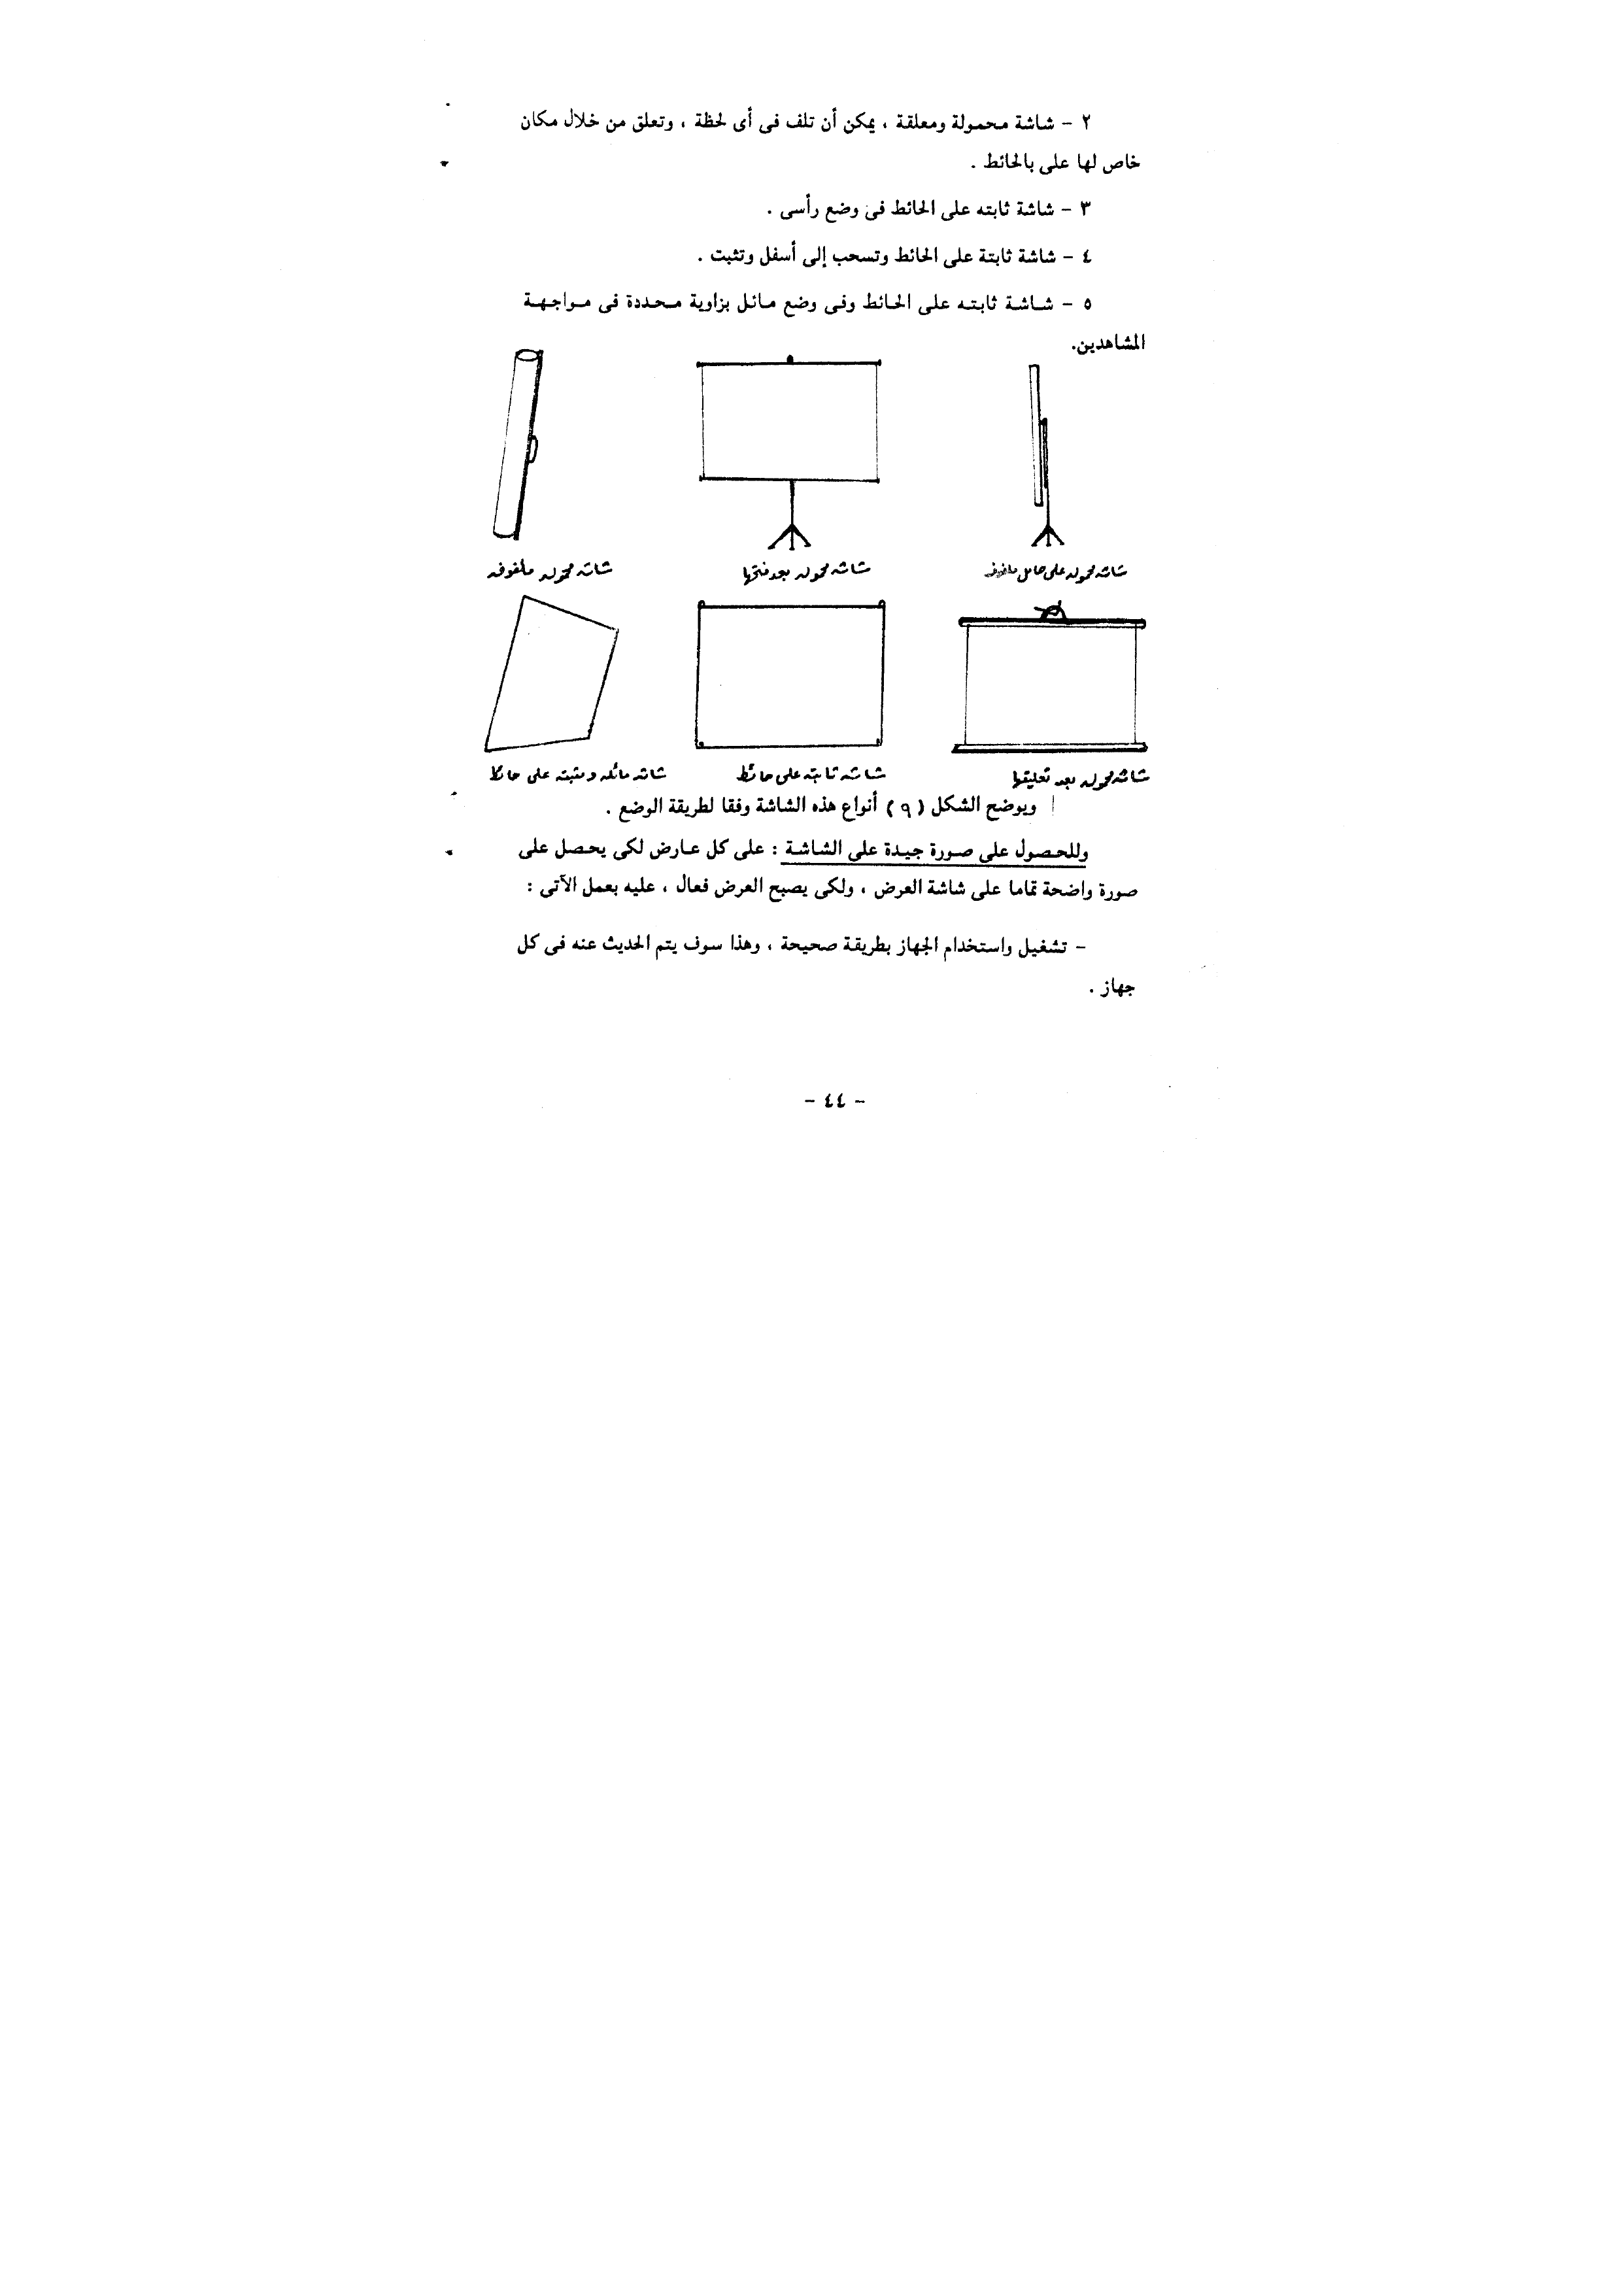 ٢ - شاشة محمولة ومعلقة ، يمكن أن تلف فى أى لحظة ، وتعلق من خلال مكان
خاص لها على بالحائط .
٣ - شاشة ثابته على الحائط فى وضع رأسى .
٤ - شاشة ثابتة على الحائط وتسحب إلى أسفل وتثبت .
٥ - شاشة ثابته على الحائط وفى وضع مائل بزاوية محددة فى مواجهة
المشاهدين.
شاشه محموله على حامل ملفوفه
شاشه محموله بعد فتحها
شاشه محموله ملفوفه
شاشه محموله بعد تعليقها
شاشه ثابته على حائط
شاشه مائله ومثبته على حائط
ويوضح الشكل ( ٩ ) أنواع هذه الشاشة وفقا لطريقة الوضع .
وللحصول على صورة جيدة على الشاشة : على كل عارض لكى يحصل على
صورة واضحة تماما على شاشة العرض ، ولكى يصبح العرض فعال ، عليه بعمل الآتى :
- تشغيل واستخدام الجهاز بطريقة صحيحة ، وهذا سوف يتم الحديث عنه فى كل
جهاز .
- ٤٤ -